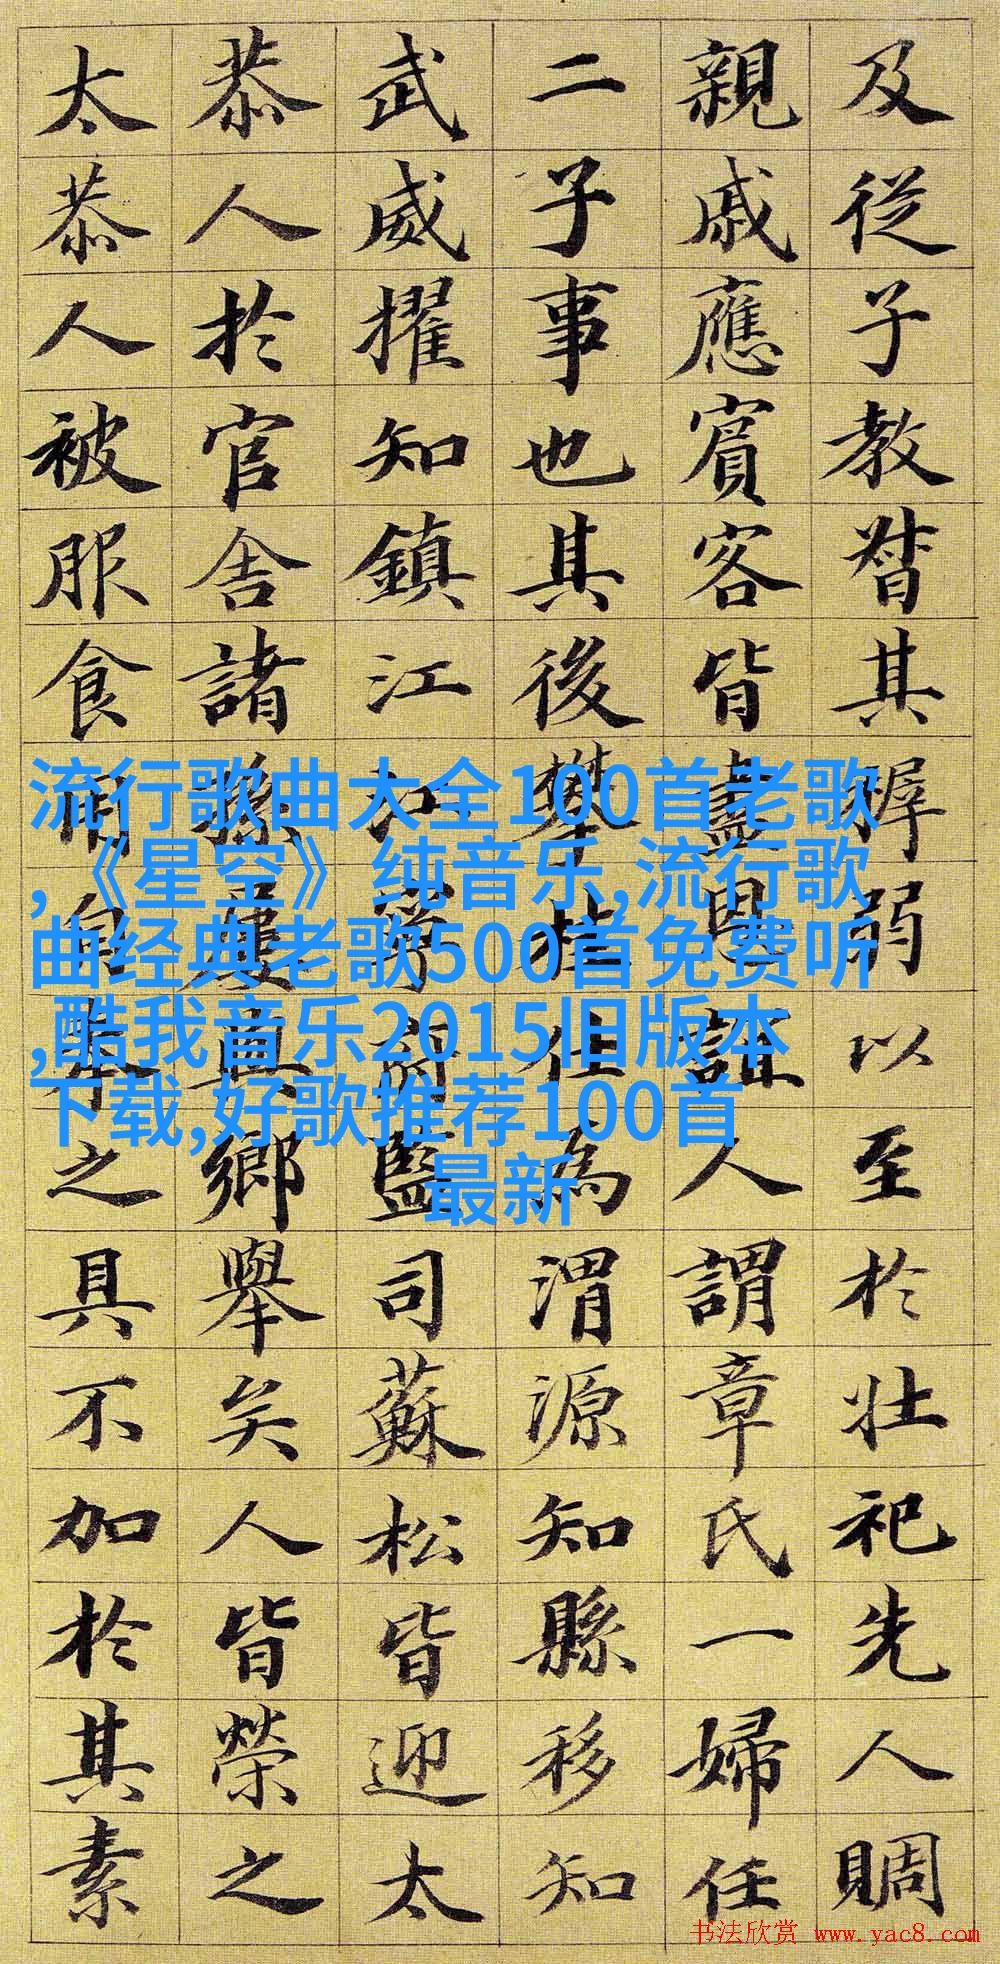 及從子教督其弱以至於壯祀先人賙
親戚應賓客皆盡恩誼人謂章氏一婦任
二子事也其後攀桂仕為渭源知縣移知
武威擢知鎮江監司蘇松皆迎太
恭人於官舍諸孫屢鄉舉矣人皆榮之
太恭人被服食用自奉之具不加於其素
流行歌曲大全100首老歌
,《星空》 纯音乐,流行歌
曲经典老歌500首免费听
,酷我音乐2015旧版本
下载,好歌推荐100首
最新
书法欣赏 www.yac8.com